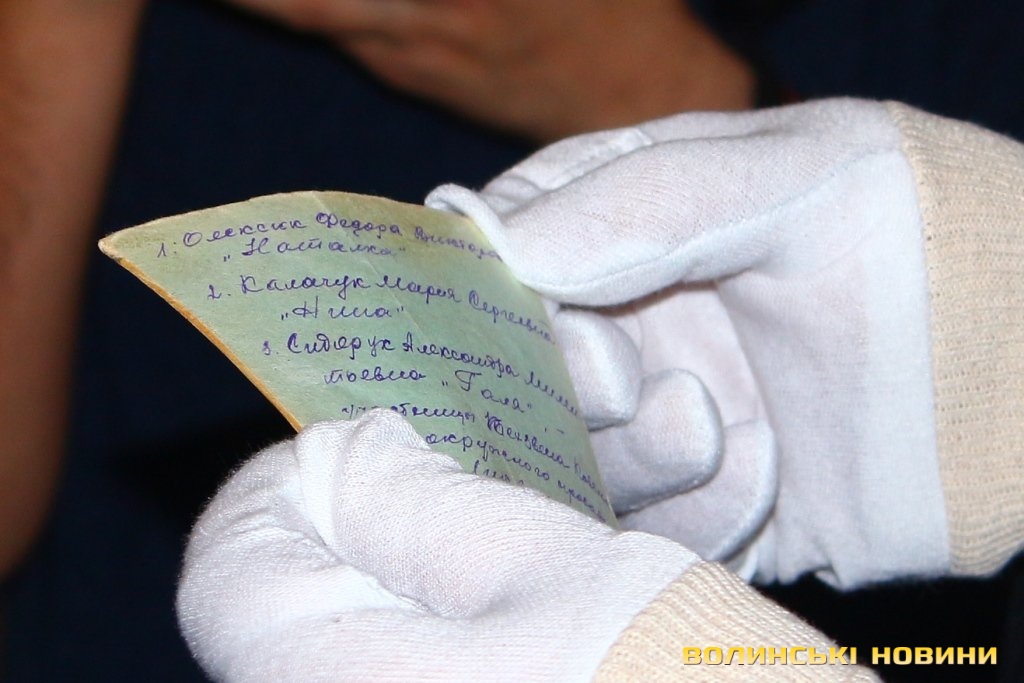 1. Олексик Федора Викторо
„Наталка"
2. Калачук Мария Сергеевна
„Нина"
3. Сидерук Александра
тьевна „Галя" –
окружного
ВОЛИНСЬКІ НОВИНИ